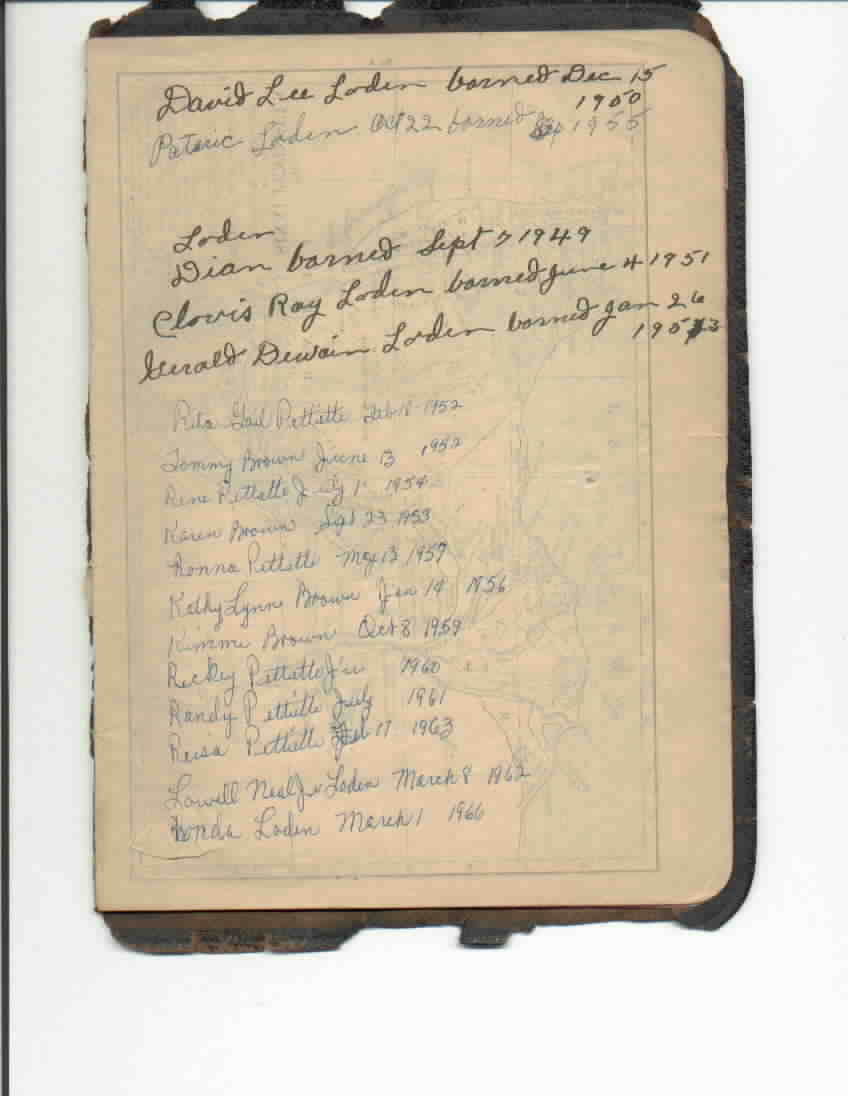 David Lee Loden borned Dec 15
1950
Pateric Loden Oct 22 borned 1955
Loden
Dian borned Sept 7 1949
Clovis Ray Loden borned June 4 1951
Gerald Dewain Loden borned Jan 26
1953
Rita Gail Pettette Feb 18 1952
Tommy Brown June 13 1952
Rene Pettette July 1 1954
Karen Brown Sept 23 1953
Ronna Pettette May 13 1957
Kathy Lynne Brown Jan 14 1956
Kimme Brown Oct 8 1959
Rickey Pettette 1960
Randy Pettette July 1961
Reisa Pettette Feb 17 1963
Lowell Neal Jr Loden March 8 1962
Ronda Loden March 1 1966